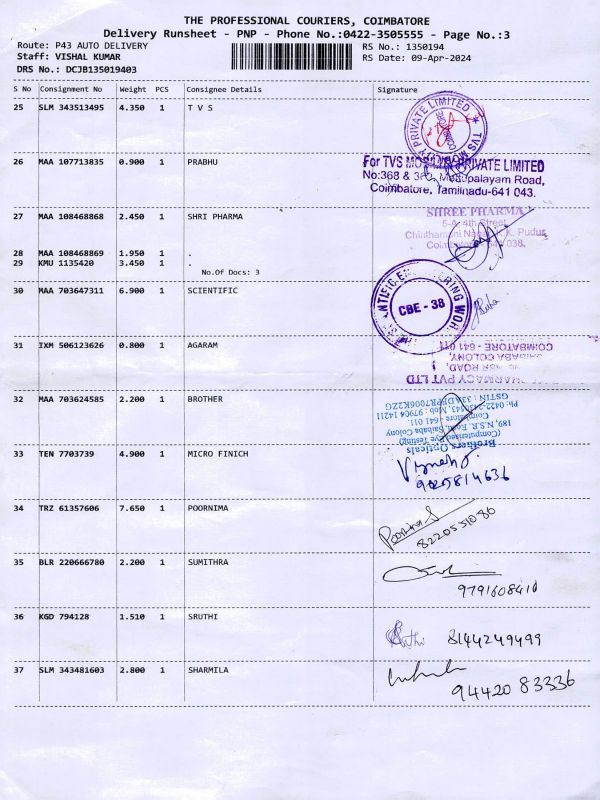 THE PROFESSIONAL COURIERS, COIMBATORE
Delivery Runsheet - PNP - Phone No.:0422-3505555 - Page No.:3
Route: P43 AUTO DELIVERY RS No.: 1350194
Staff: VISHAL KUMAR RS Date: 09-Apr-2024
DRS No.: DCJB135019403
S No Consignment No Weight PCS Consignee Details Signature
25 SLM 343513495 4.350 1 T V S
PRIVATE LIMITED
26 MAA 107713835 0.900 1 PRABHU
For TVS PRIVATE LIMITED
No:368 & Mettupalayam Road,
Coimbatore, Tamilnadu-641 043.
27 MAA 108468868 2.450 1 SHRI PHARMA
SHREE PHARMA
5-A, 4th Street,
Chinthamani Nagar, K.K. Pudur,
Coimbatore - 641 038.
28 MAA 108468869 1.950 1 .
29 KMU 1135420 3.450 1 .
No.Of Docs: 3
30 MAA 703647311 6.900 1 SCIENTIFIC
CBE - 38
31 IXM 506123626 0.800 1 AGARAM
PHARMACY PVT LTD
ROAD,
SAIBABA COLONY,
COIMBATORE - 641 011.
32 MAA 703624585 2.200 1 BROTHER
Brothers Opticals
(Computerised Eye Testing)
189, N.S.R. Road, Saibaba Colony
Coimbatore - 641 011.
Ph: 0422- Mob: 97904 14211
GSTIN : 33
33 TEN 7703739 4.900 1 MICRO FINICH
34 TRZ 61357606 7.650 1 POORNIMA
Poornima S
8220531086
35 BLR 220666780 2.200 1 SUMITHRA
9791608410
36 KGD 794128 1.510 1 SRUTHI
8144249499
37 SLM 343481603 2.800 1 SHARMILA
94420 83336